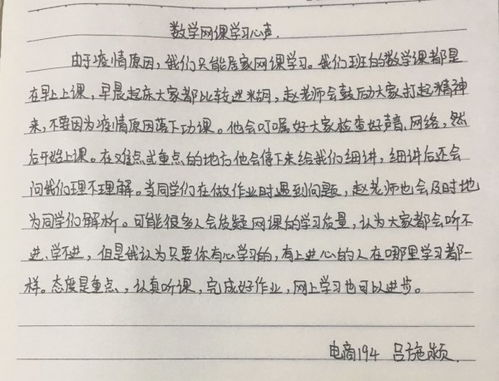 数学网课学习心声
由于疫情原因，我们只能居家网课学习。我们班的数学课都是
在早上上课，早晨起床大家都比较迷糊，赵老师会鼓励大家打起精神
来，不要因为疫情原因落下功课。他会叮嘱好大家检查好声音、网络，然
后开始上课。在难点或重点的地方他会停下来给我们细讲，细讲后还会
问我们理不理解。当同学们在做作业时遇到问题，赵老师也会及时地
为同学们解析。可能很多人会质疑网课的学习质量，认为大家都会听不
进、学不进，但是我认为只要你有心学习的，有上进心的人在哪里学习都一
样。态度是重点，认真听课，完成好作业，网上学习也可以进步。
电商194 吕施颍